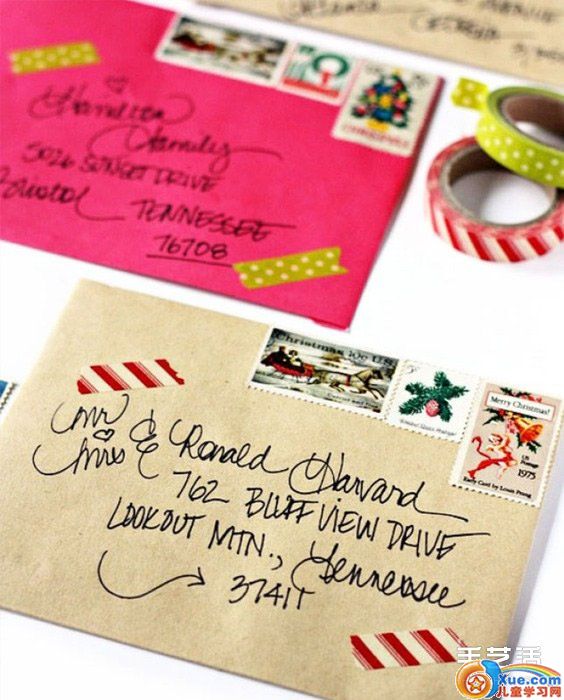 Hamilton
Family
5026 SUNSET DRIVE
Bristol TENNESSEE
76708
Christmas 10c US
Merry Christmas!
US
Postage
1975
Early Card by Louis Prang
Mr &
Mrs Ronald Harvard
762 BLUFF VIEW DRIVE
LOOKOUT MTN., Tennessee
手艺活
Xue.com
儿童学习网